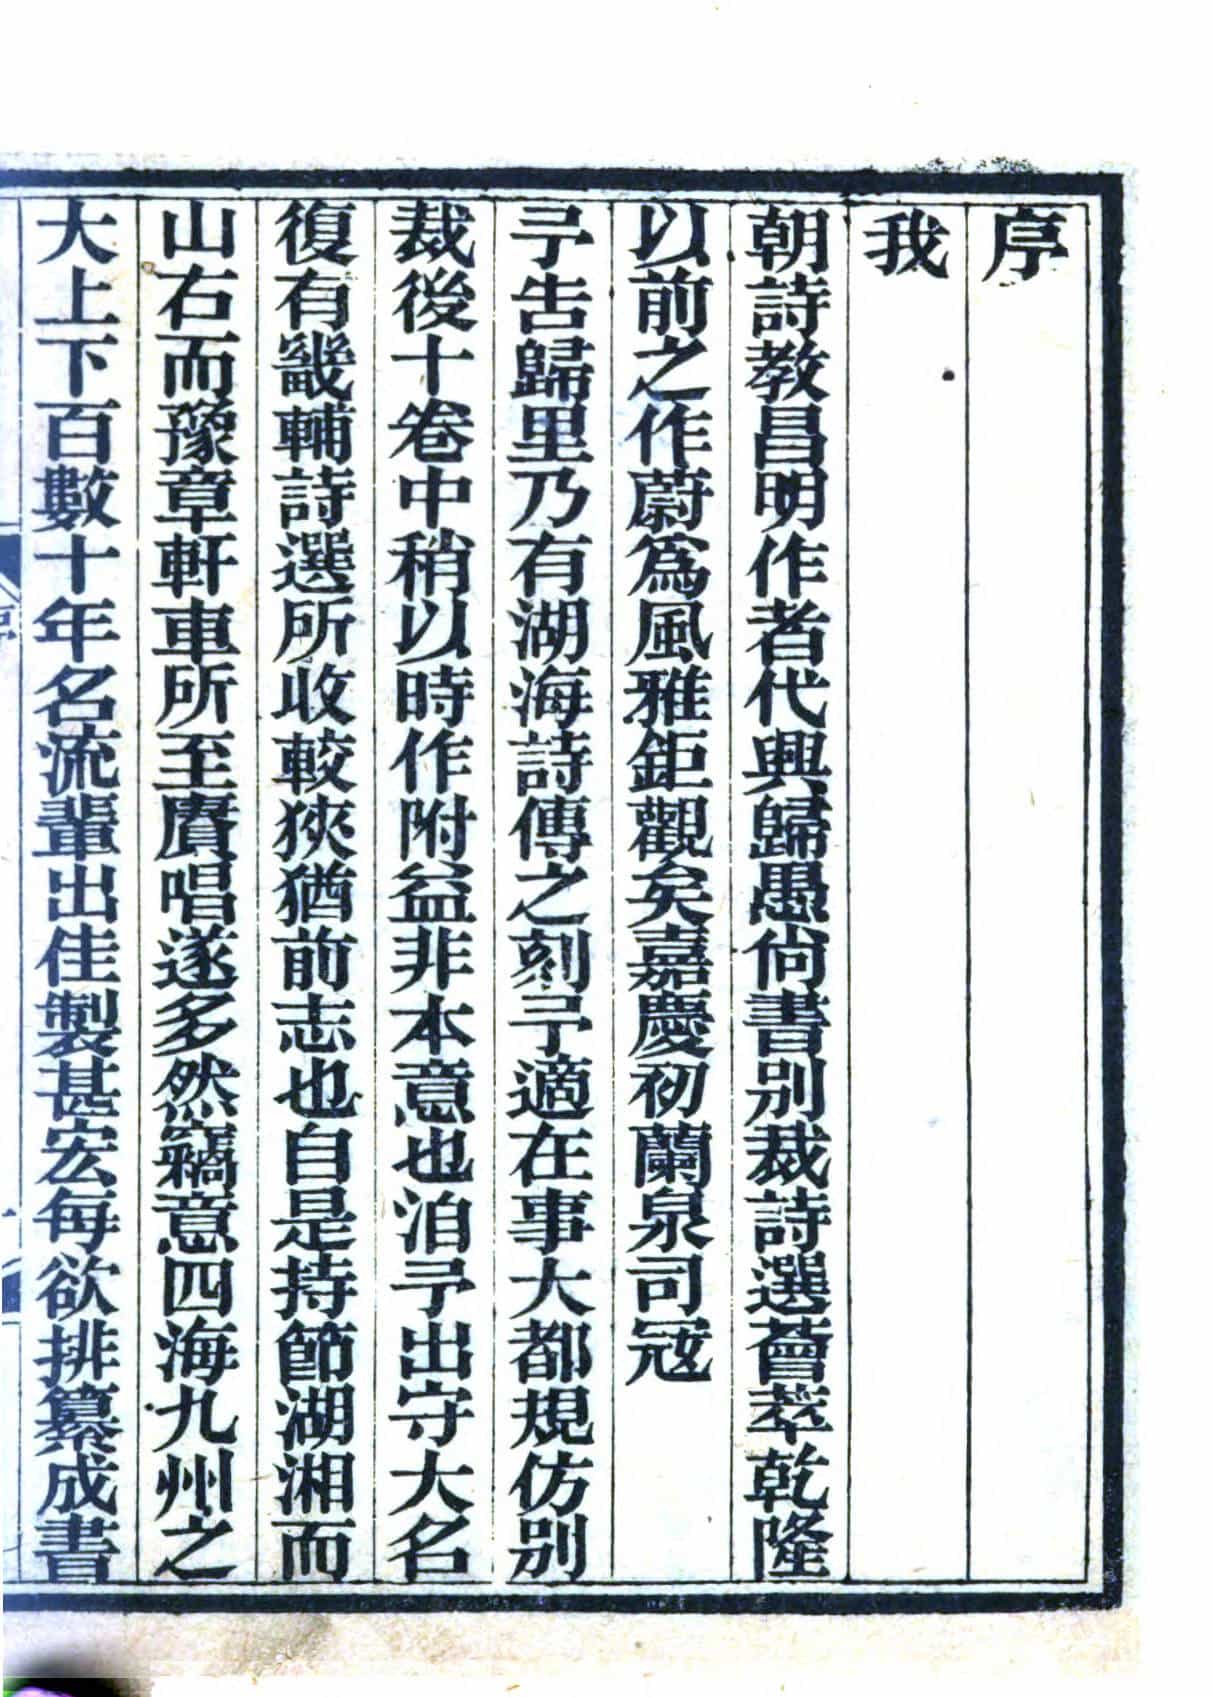 序
我
朝詩教昌明作者代興歸愚尙書別裁詩選薈萃乾隆
以前之作蔚爲風雅鉅觀矣嘉慶初蘭泉司冦
予告歸里乃有湖海詩傳之刻予適在事大都規仿別
裁後十卷中稍以時作附益非本意也洎予出守大名
復有畿輔詩選所收較狹猶前志也自是持節湖湘而
山右而豫章軒車所至賡唱遂多然竊意四海九州之
大上下百數十年名流輩出佳製甚宏每欲排纂成書